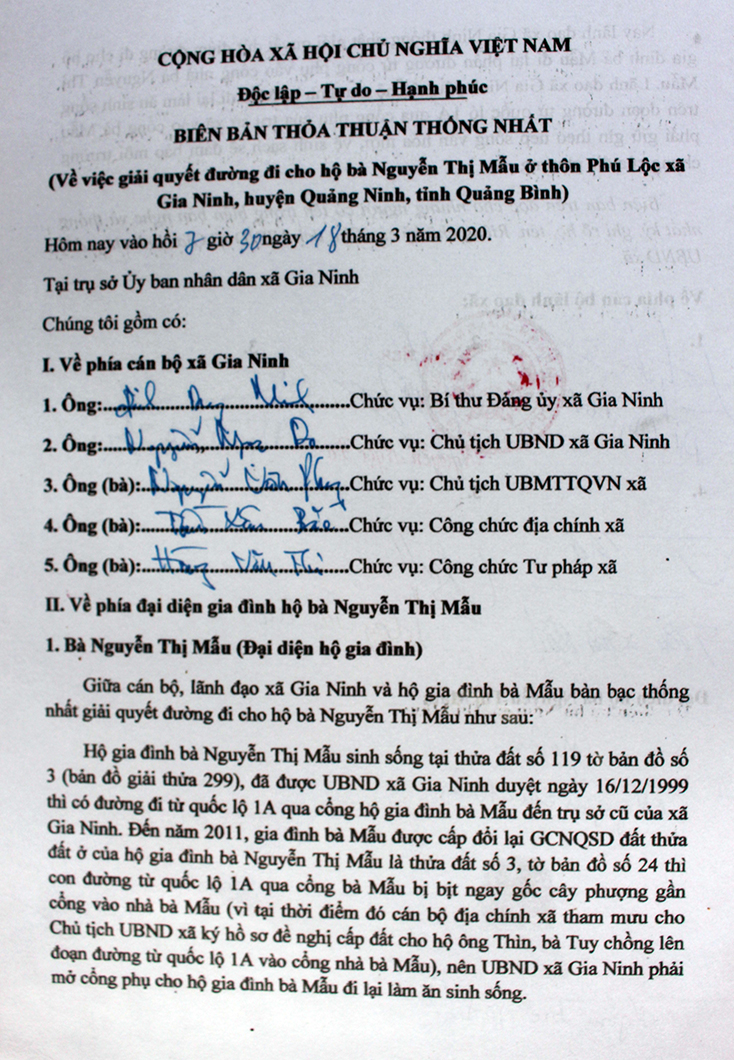 CỘNG HÒA XÃ HỘI CHỦ NGHĨA VIỆT NAM
Độc lập – Tự do – Hạnh phúc
BIÊN BẢN THỎA THUẬN THỐNG NHẤT
(Về việc giải quyết đường đi cho hộ bà Nguyễn Thị Mẫu ở thôn Phú Lộc xã
Gia Ninh, huyện Quảng Ninh, tỉnh Quảng Bình)
Hôm nay vào hồi 7 giờ 30 ngày 18 tháng 3 năm 2020.
Tại trụ sở Ủy ban nhân dân xã Gia Ninh
Chúng tôi gồm có:
I. Về phía cán bộ xã Gia Ninh
1. Ông:.....Chức vụ: Bí thư Đảng ủy xã Gia Ninh
2. Ông:.....Nguyễn.....Chức vụ: Chủ tịch UBND xã Gia Ninh
3. Ông (bà):.....Nguyễn.....Chức vụ: Chủ tịch UBMTTQVN xã
4. Ông (bà):.....Chức vụ: Công chức địa chính xã
5. Ông (bà):.....Văn.....Chức vụ: Công chức Tư pháp xã
II. Về phía đại diện gia đình hộ bà Nguyễn Thị Mẫu
1. Bà Nguyễn Thị Mẫu (Đại diện hộ gia đình)
Giữa cán bộ, lãnh đạo xã Gia Ninh và hộ gia đình bà Mẫu bàn bạc thống
nhất giải quyết đường đi cho hộ bà Nguyễn Thị Mẫu như sau:
Hộ gia đình bà Nguyễn Thị Mẫu sinh sống tại thửa đất số 119 tờ bản đồ số
3 (bản đồ giải thửa 299), đã được UBND xã Gia Ninh duyệt ngày 16/12/1999
thì có đường đi từ quốc lộ 1A qua cổng hộ gia đình bà Mẫu đến trụ sở cũ của xã
Gia Ninh. Đến năm 2011, gia đình bà Mẫu được cấp đổi lại GCNQSD đất thửa
đất ở của hộ gia đình bà Nguyễn Thị Mẫu là thửa đất số 3, tờ bản đồ số 24 thì
con đường từ quốc lộ 1A qua cổng bà Mẫu bị bịt ngay gốc cây phượng gần
cổng vào nhà bà Mẫu (vì tại thời điểm đó cán bộ địa chính xã tham mưu cho
Chủ tịch UBND xã ký hồ sơ đề nghị cấp đất cho hộ ông Thìn, bà Tuy chồng lên
đoạn đường từ quốc lộ 1A vào cổng nhà bà Mẫu), nên UBND xã Gia Ninh phải
mở cổng phụ cho hộ gia đình bà Mẫu đi lại làm ăn sinh sống.